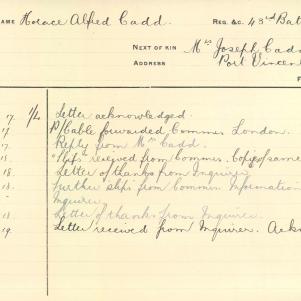 NAME Horace Alfred Cadd. REG. &C. 43rd Bat
NEXT OF KIN Mrs Joseph Cadd
ADDRESS Port Vincent
F
17 Letter acknowledged.
17 P/Cable forwarded, Commrs London.
17 Reply from Mrs Cadd.
18. "Slips" received from Commrs. Copy of same
18 Letter of thanks from Inquirer
18. Further slips from Commrs Information
Inquirer
18 Letter of thanks from Inquirer.
19 Letter received from Inquirer. Ackn